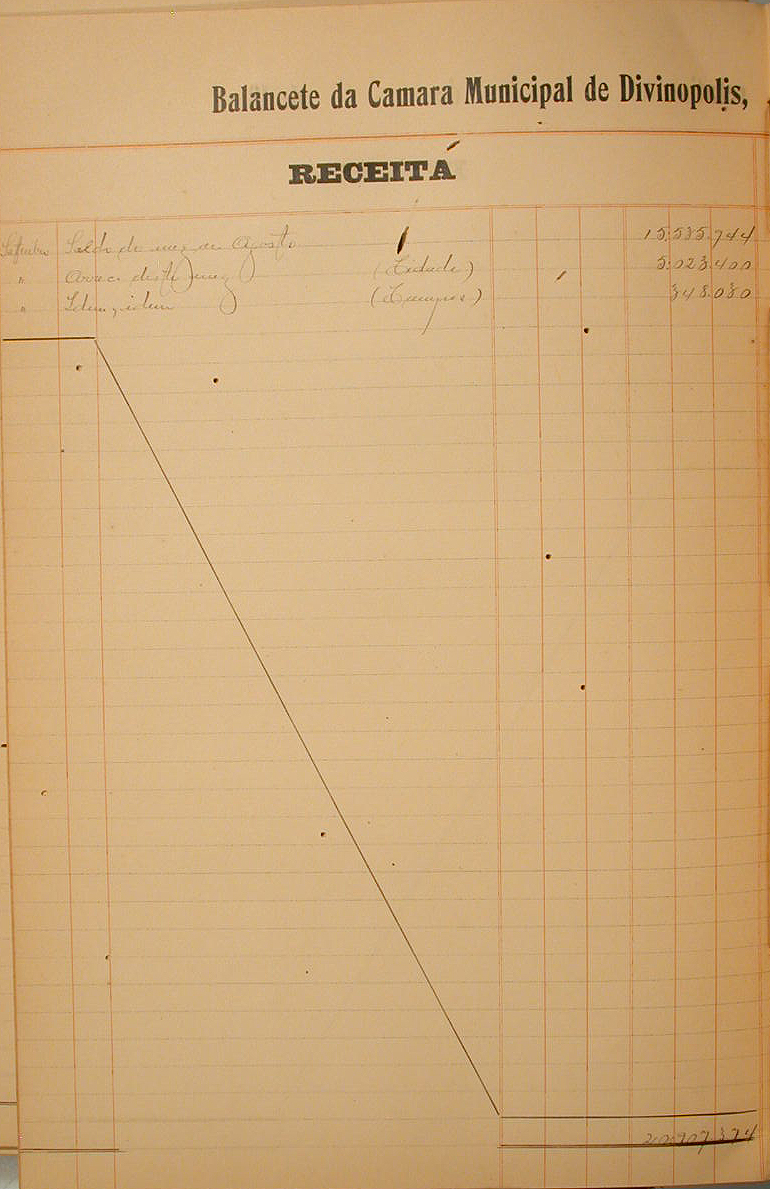 Balancete da Camara Municipal de Divinopolis,
RECEITA
Setembro Saldo do mez de Agosto 15.535.744
" Arrec. deste mez (Cidade) 5.023.400
" Idem, idem (Campos) 348.030